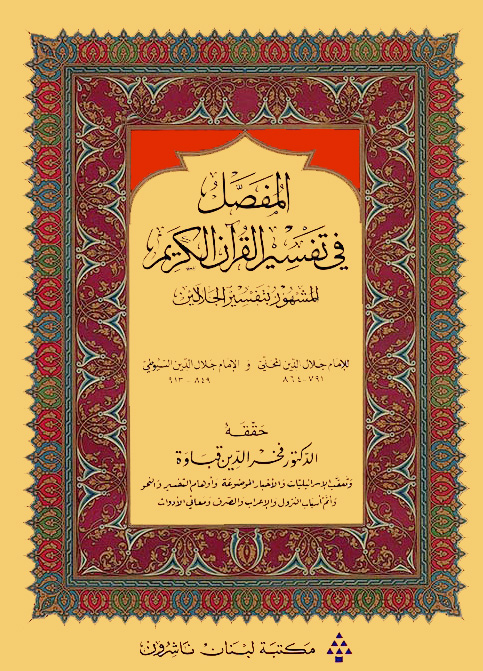 المفصّل
في تفسير القرآن الكريم
المشهور بتفسير الجلالين
للإمام جلال الدّين المحلّيّ و الإمام جلال الدّين السّيوطيّ
٧٩١-٨٦٤ ٨٤٩-٩١٣
حقّقه
الدكتور فخر الدين قباوة
وتعقّب الإسرائيليّات والأخبار الموضوعة وأوهام التفسير والنحو
وأتمّ أسباب النزول والإعراب والصّرف ومعاني الأدوات
مكتبة لبنان ناشرون